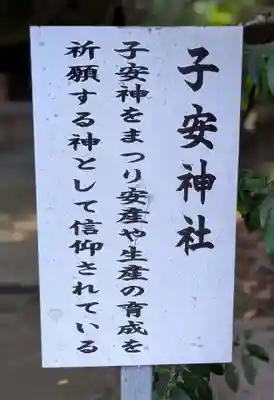 子安神社
子安神をまつり安産や生産の育成を
祈願する神として信仰されている